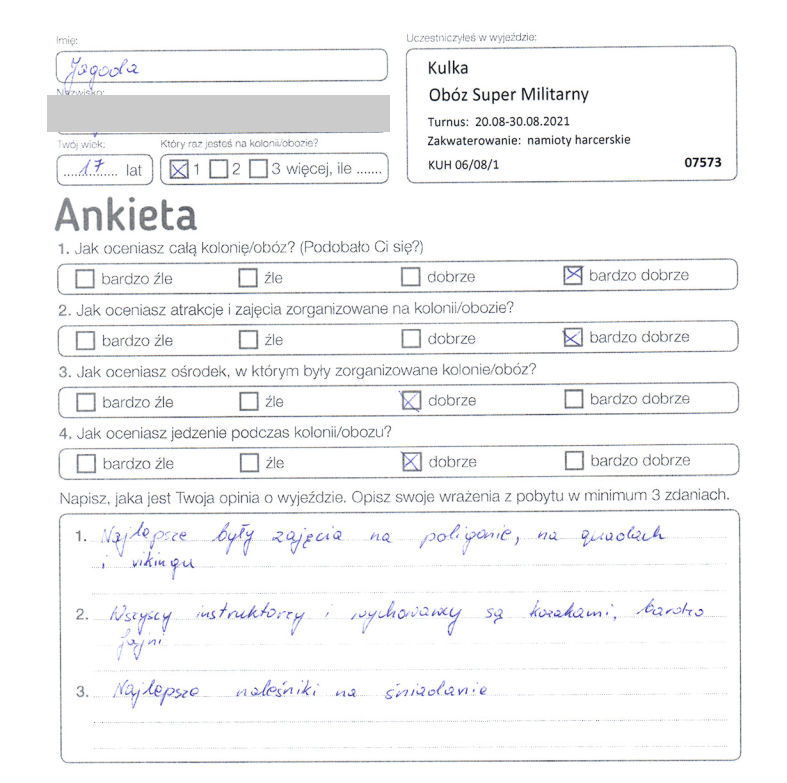 Imię:
Jagoda
Nazwisko:
Twój wiek:
17 lat
Który raz jesteś na kolonii/obozie?
1 2 3 więcej, ile .......
Uczestniczyłeś w wyjeździe:
Kulka
Obóz Super Militarny
Turnus: 20.08-30.08.2021
Zakwaterowanie: namioty harcerskie
KUH 06/08/1 07573
Ankieta
1. Jak oceniasz całą kolonię/obóz? (Podobało Ci się?)
bardzo źle źle dobrze bardzo dobrze
2. Jak oceniasz atrakcje i zajęcia zorganizowane na kolonii/obozie?
bardzo źle źle dobrze bardzo dobrze
3. Jak oceniasz ośrodek, w którym były zorganizowane kolonie/obóz?
bardzo źle źle dobrze bardzo dobrze
4. Jak oceniasz jedzenie podczas kolonii/obozu?
bardzo źle źle dobrze bardzo dobrze
Napisz, jaka jest Twoja opinia o wyjeździe. Opisz swoje wrażenia z pobytu w minimum 3 zdaniach.
1. Najlepsze były zajęcia na poligonie, na quadach
i vikingu
2. Wszyscy instruktorzy i wychowawcy są kozakami, bardzo
fajni
3. Najlepsze naleśniki na śniadanie